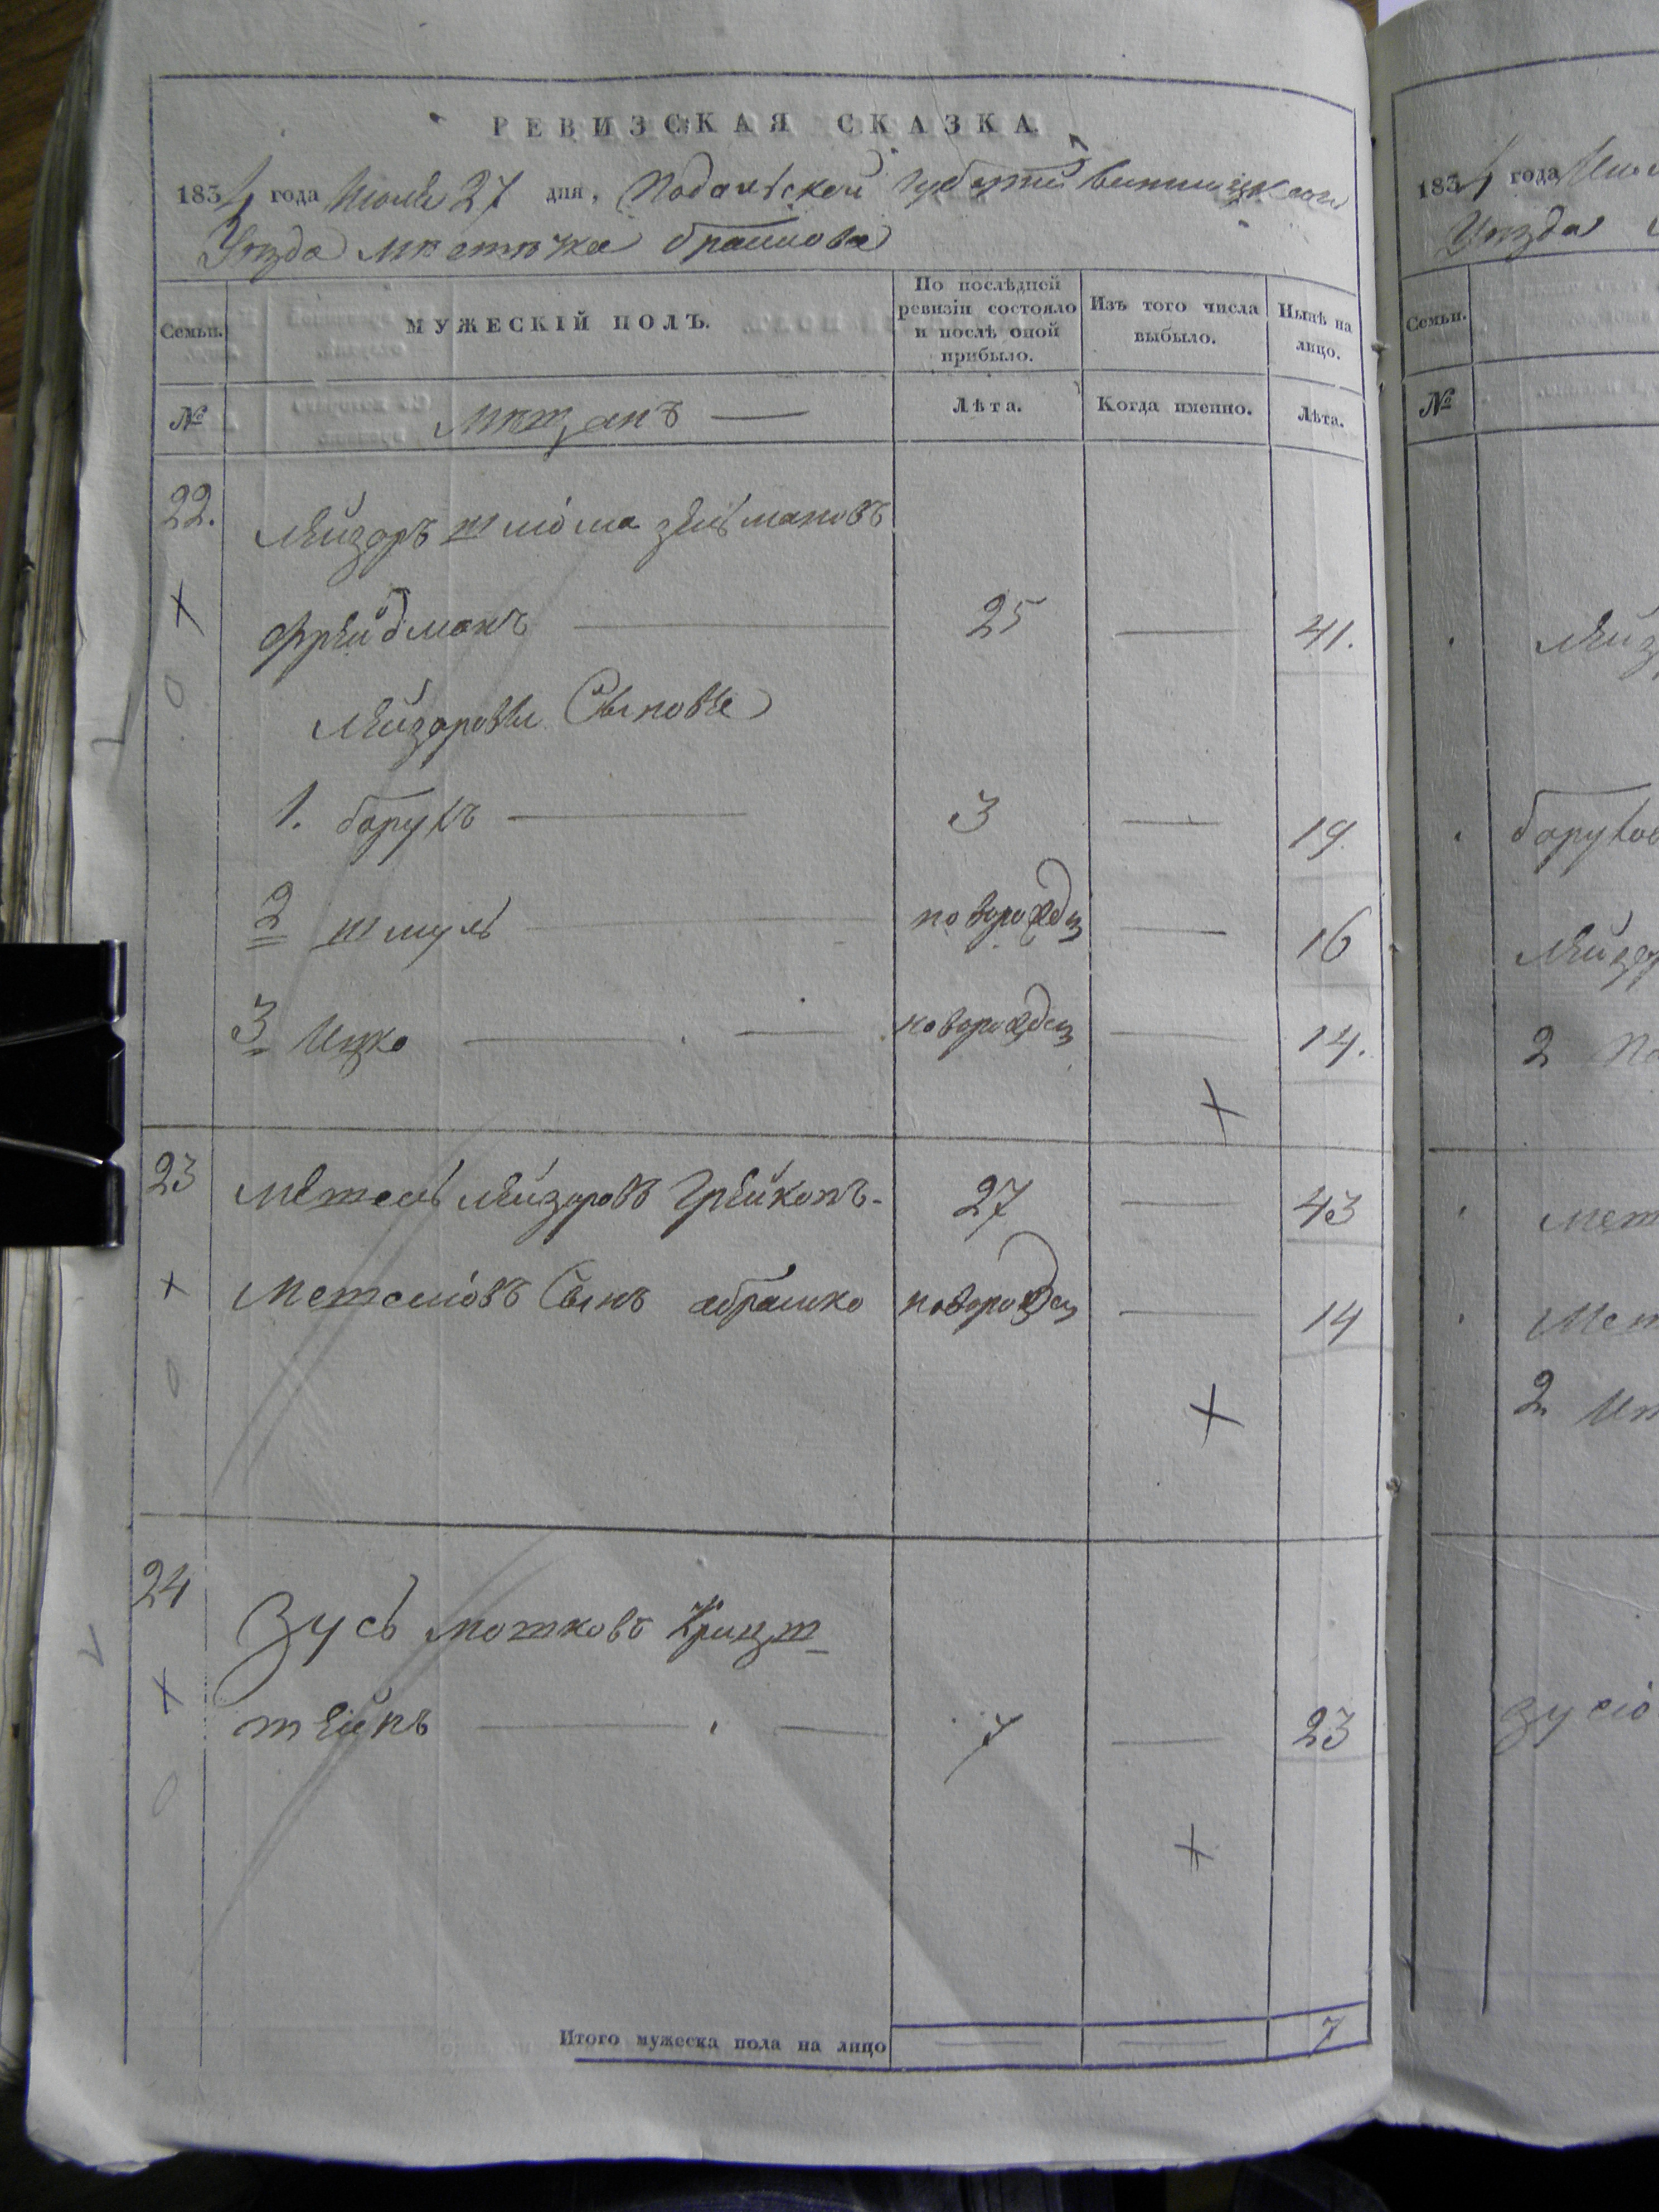 РЕВИЗСКАЯ СКАЗКА.
1834 года Июля 27 дня, Подольской Губерніи Винницкого
Уѣзда мѣстѣчка браилова
Семьи.
МУЖЕСКІЙ ПОЛЪ.
По послѣдней ревизіи состояло и послѣ оной прибыло.
Изъ того числа выбыло.
Нынѣ на лицо.
№
мѣщанъ
Лѣта.
Когда именно.
Лѣта.
22. Лейзоръ шліома зельмановъ
Фрейдманъ 25 41.
Лейзоровы Сыновье
1. борухъ 3 19
2 шмуль новорожден 16
3 Ицко новорожден 14.
23 Метель Лейзоровъ 27 43
Метеліовъ Сынъ абрамко новорожден 14
24
Зусь мотковъ Кринш
тейнъ 7 23
Итого мужеска пола на лицо 7
1834 года
Уѣзда
Семьи.
№
борухов
2
2